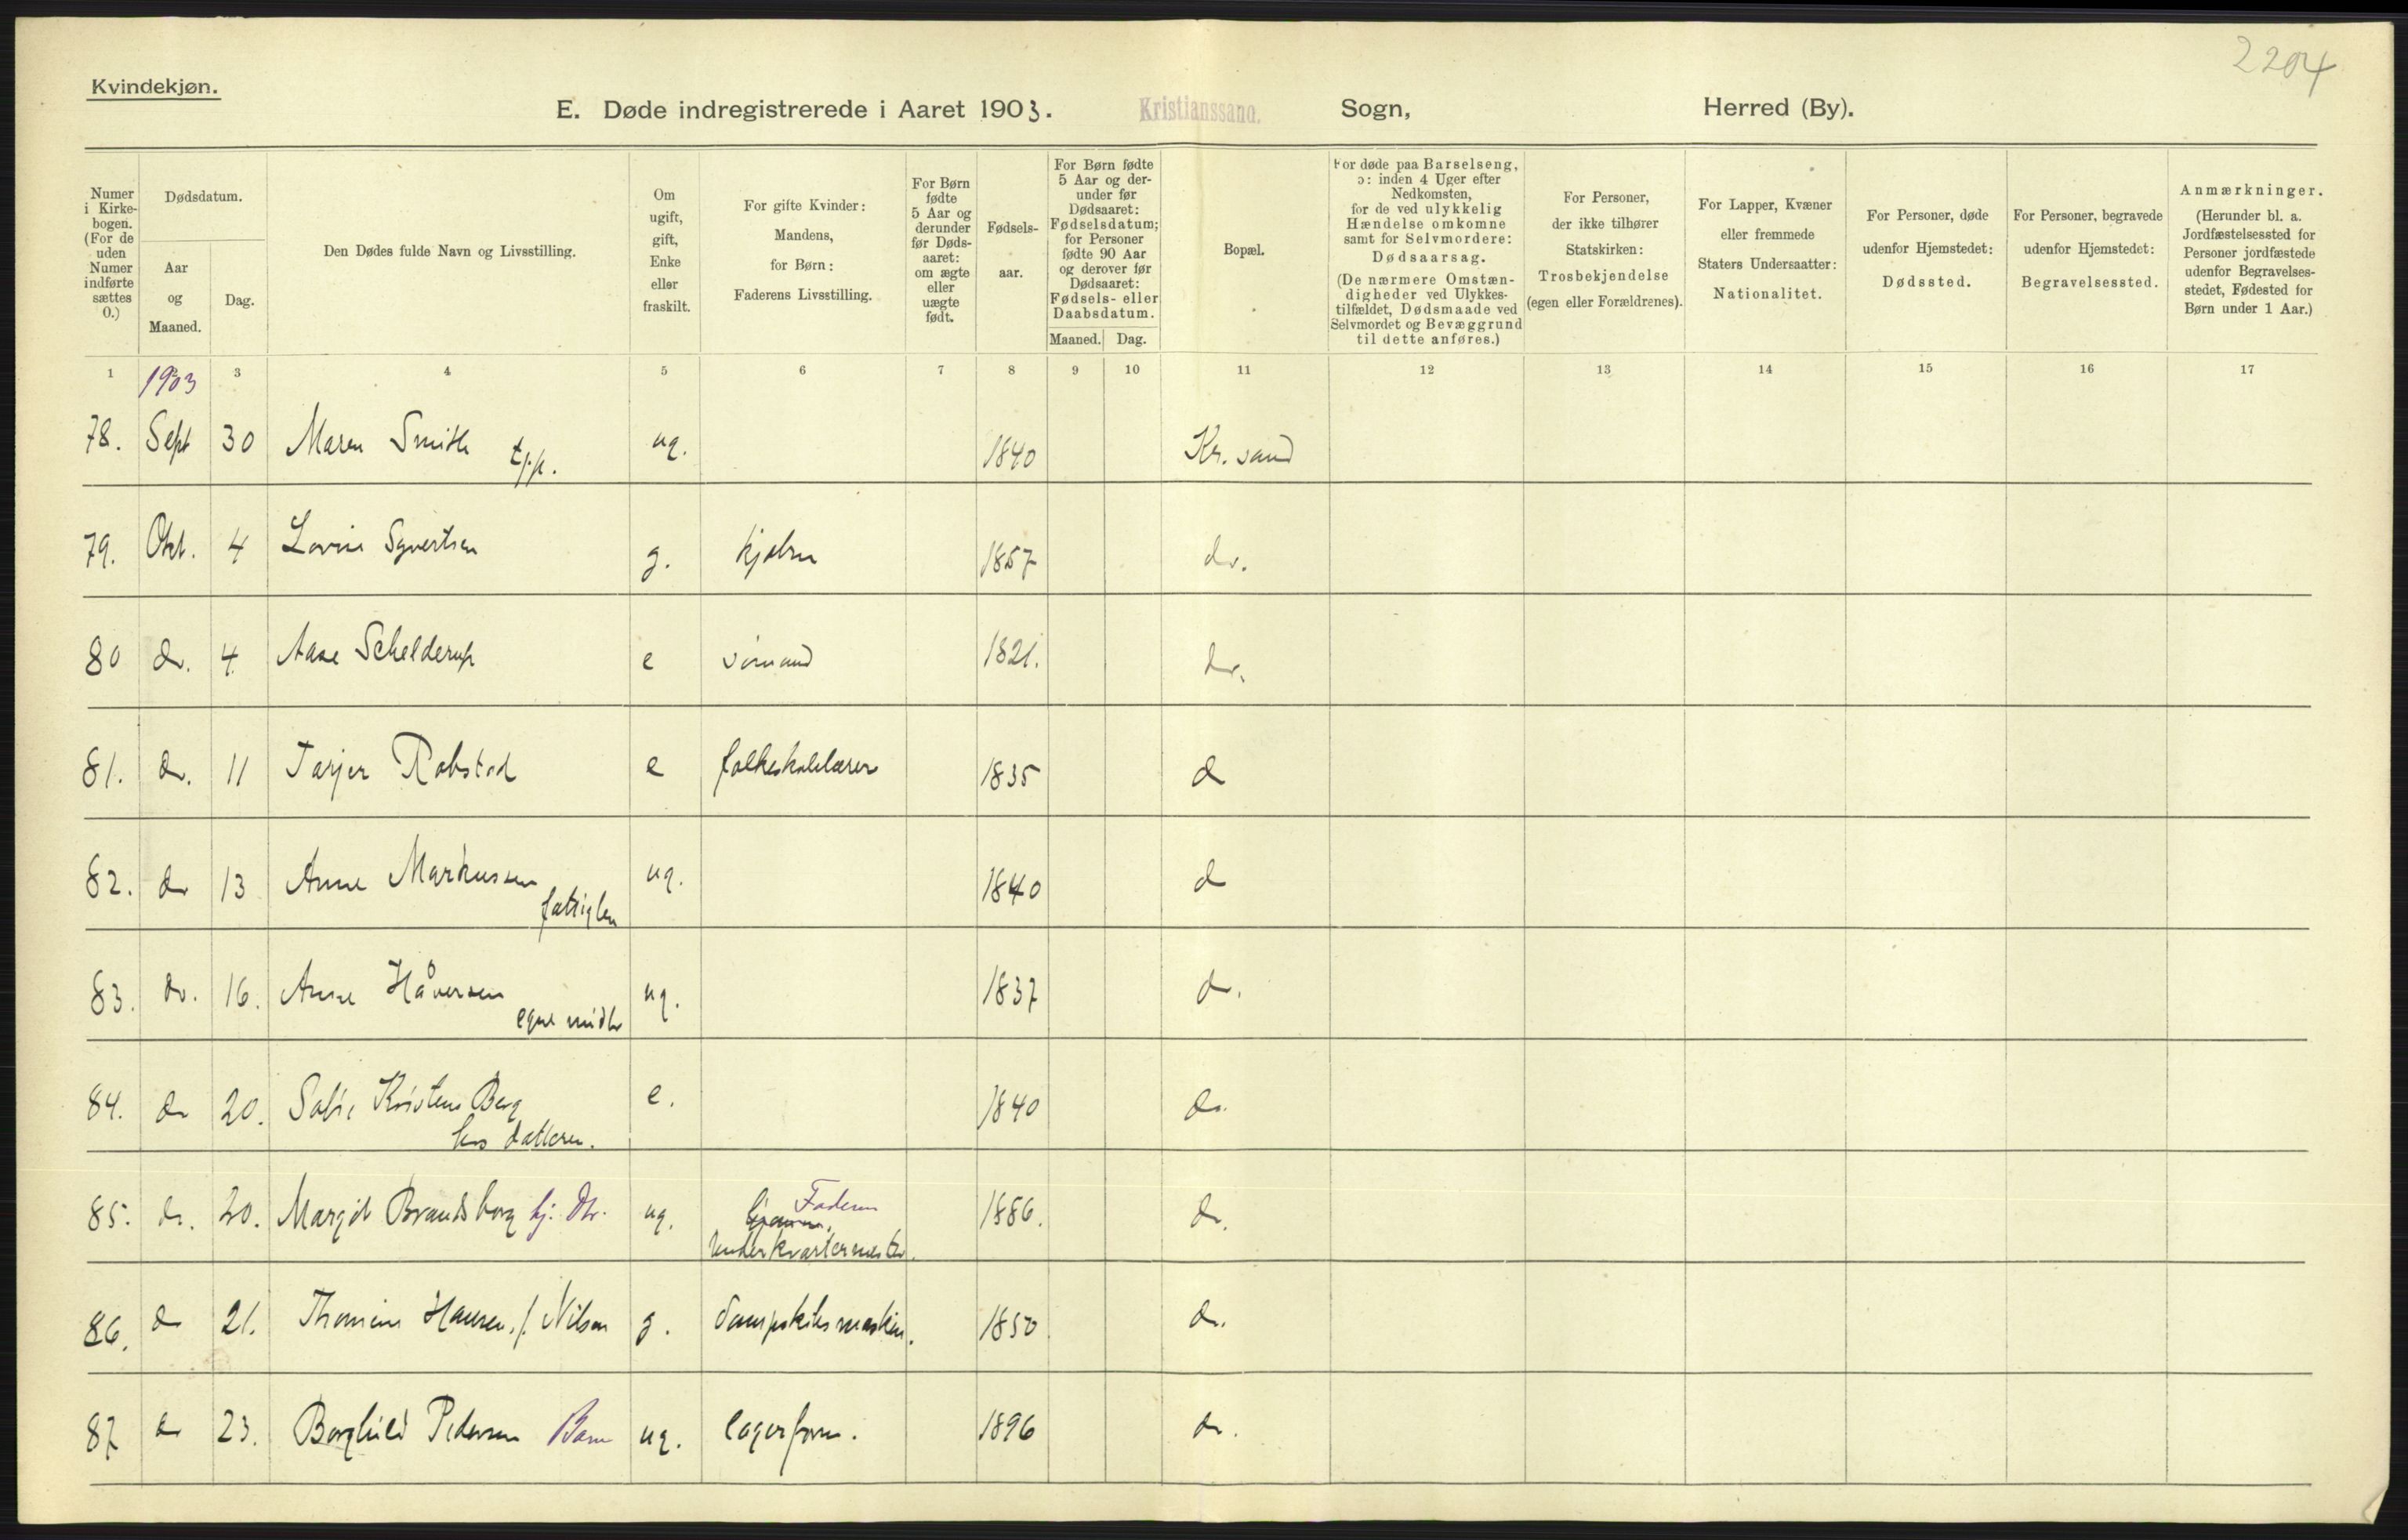 2204
Kvindekjøn.
E. Døde indregistrerede i Aaret 1903. Kristianssand. Sogn, Herred (By).
Numer i Kirkebogen. (For de uden Numer indførte sættes 0.)
Dødsdatum.
Aar og Maaned.
Dag.
Den Dødes fulde Navn og Livsstilling.
Om ugift, gift, Enke eller fraskilt.
For gifte Kvinder: Mandens, for Børn: Faderens Livsstilling.
For Børn fødte 5 Aar og derunder før Dødsaaret: om ægte eller uægte født.
Fødselsaar.
For Børn fødte 5 Aar og derunder før Dødsaaret: Fødselsdatum; for Personer fødte 90 Aar og derover før Dødsaaret: Fødsels- eller Daabsdatum.
Maaned. Dag.
Bopæl.
For døde paa Barselseng, ɔ: inden 4 Uger efter Nedkomsten, for de ved ulykkelig Hændelse omkomne samt for Selvmordere: Dødsaarsag. (De nærmere Omstændigheder ved Ulykkestilfældet, Dødsmaade ved Selvmordet og Bevæggrund til dette anføres.)
For Personer, der ikke tilhører Statskirken: Trosbekjendelse (egen eller Forældrenes).
For Lapper, Kvæner eller fremmede Staters Undersaatter: Nationalitet.
For Personer, døde udenfor Hjemstedet: Dødssted.
For Personer, begravede udenfor Hjemstedet: Begravelsessted.
Anmærkninger. (Herunder bl. a. Jordfæstelsessted for Personer jordfæstede udenfor Begravelsesstedet, Fødested for Børn under 1 Aar.)
1 3 4 5 6 7 8 9 10 11 12 13 14 15 16 17
1903
78. Sept 30 Maren Smith ug. 1840 Kr.sand
79. Okt. 4 Lovise Syvertsen g. 1857 do.
80 do. 4. Aase Schelderup e sømand 1821. do.
81. do. 11 Tarjer Robstad e folkeskolelærer 1835 do
82. do 13 Anne Markussen ug. 1840 do
fattiglem
83. do. 16. Anne Håversen ug. 1837 do.
egne midler
84. do 20. Kristens Berg e. 1840 do.
hos datteren.
85. do. 20. Margit Brandsborg hj. Dtr. ug. Faderen 1886. do.
Underkvartermester.
86. do 21. Thomine Hansen, f. Nilsen g. dampskibsmaskin. 1850 do.
87 do 23. Borghild Pedersen Barn ug. lagerform. 1896 do.